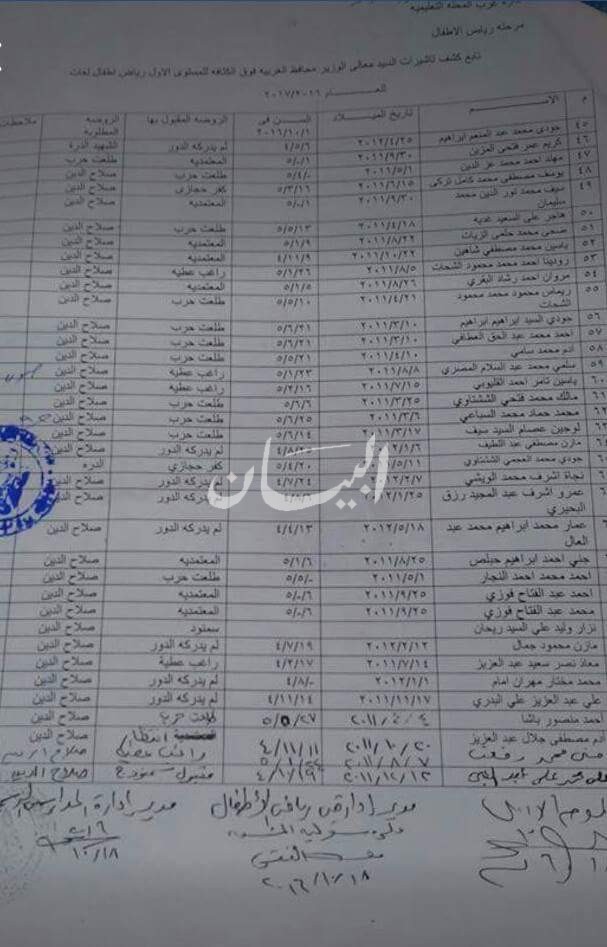 مرحله رياض الاطفال
تابع كشف تاشيرات السيد معالى الوزير محافظ الغربيه فوق الكثافه للمستوى الاول رياض اطفال لغات
العـــام ٢٠١٧/٢٠١٦
م الاســـم تاريخ الميـــلاد السن فى ٢٠١٦/١٠/١ الروضه المقبول بها الروضه المطلوبة ملاحظات
٤٥ جودى محمد عبد المنعم ابراهيم ٢٠١٢/٤/٢٥ ٤/٥/٦ لم يدركه الدور الشهيد الدرة
٤٦ كريم عمر فتحى المزين ٢٠١١/٩/٣٠ ٥/٠/١ المعتمديه طلعت حرب
٤٧ مهاد احمد محمد عز الدين ٢٠١١/٥/١ ٥/٤/٠ طلعت حرب صلاح الدين
٤٨ يوسف مصطفى محمد كامل تركى ٢٠١١/٦/١٥ ٥/٣/١٦ كفر حجازى صلاح الدين
٤٩ سيف محمد نور الدين محمد سليمان ٢٠١١/٩/٣٠ ٥/٠/١ المعتمديه صلاح الدين
٥٠ هاجر على السعيد عديه ٢٠١١/٤/١٨ ٥/٥/١٣ طلعت حرب صلاح الدين
٥١ ضحى محمد حلمى الزيات ٢٠١١/٨/٢٢ ٥/١/٩ المعتمديه صلاح الدين
٥٢ ياسين محمد مصطفي شاهين ٢٠١١/١٠/٢٢ ٤/١١/٩ المعتمديه صلاح الدين
٥٣ رودينا احمد محمد محمود الشحات ٢٠١١/٨/٥ ٥/١/٢٦ راغب عطيه صلاح الدين
٥٤ مروان احمد رشاد البغرى ٢٠١١/٨/٢٦ ٥/١/٥ المعتمديه صلاح الدين
٥٥ ريماس محمود محمد محمود الشحات ٢٠١١/٤/٢١ ٥/٥/١٠ طلعت حرب صلاح الدين
٥٦ جودي السيد ابراهيم ابراهيم ٢٠١١/٣/١٠ ٥/٦/٢١ طلعت حرب صلاح الدين
٥٧ احمد محمد عبد الحق العطافي ٢٠١١/٣/١٠ ٥/٦/٢١ طلعت حرب صلاح الدين
٥٨ ادم محمد سامي ٢٠١١/٤/١٠ ٥/٥/٢١ طلعت حرب صلاح الدين
٥٩ سلمي محمد عبد السلام المصري ٢٠١١/٨/٨ ٥/١/٢٣ راغب عطيه صلاح الدين
٦٠ ياسين تامر احمد القليوبي ٢٠١١/٧/١٥ ٥/٢/١٦ راغب عطيه صلاح الدين
مالك محمد فتحي الششتاوي ٢٠١١/٣/٢٥ ٥/٦/٦ طلعت حرب صلاح الدين
محمد حماد محمد السباعي ٢٠١١/٣/٦ ٥/٦/٢٥ طلعت حرب صلاح الدين
لوجين عصام السيد سيف ٢٠١١/٣/١٧ ٥/٦/١٤ طلعت حرب صلاح الدين
مازن مصطفي عبد اللطيف لم يدركه الدور صلاح الدين
جودي محمد العجمي الششتاوي ٥/٤/٢٠ كفر حجازي الدره
نجاة اشرف محمد الويشي ٤/٧/٢٤ لم يدركه الدور صلاح الدين
عمرو اشرف عبد المجيد رزق البحيري لم يدركه الدور صلاح الدين
عمار محمد ابراهيم محمد عبد العال ٢٠١٢/٥/١٨ ٤/٤/١٣ لم يدركه الدور صلاح الدين
جني احمد ابراهيم حبلص ٢٠١١/٨/٢٥ ٥/١/٦ المعتمديه صلاح الدين
احمد محمد احمد النجار ٢٠١١/٥/١ ٥/٥/٠ طلعت حرب صلاح الدين
احمد عبد الفتاح فوزي ٢٠١١/٩/٢٥ ٥/٠/٦ المعتمديه صلاح الدين
محمد عبد الفتاح فوزي ٢٠١١/٩/٢٥ ٥/٠/٦ المعتمديه صلاح الدين
نزار وليد علي السيد ريحان سمنود صلاح الدين
مازن محمود جمال ٢٠١٢/٢/١٢ ٤/٧/١٩ لم يدركه الدور صلاح الدين
معاذ نصر سعيد عبد العزيز ٢٠١١/٧/١٤ ٤/٢/١٧ راغب عطية صلاح الدين
محمد مختار مهران امام ٢٠١٢/١/١ ٤/٨/٠ لم يدركه الدور صلاح الدين
علي عبد العزيز علي البدري ٢٠١١/١١/١٧ ٤/١١/١٤ لم يدركه الدور صلاح الدين
احمد منصور باشا ٢٠١١/٤/٤ ٥/٥/٢٧ طلعت حرب صلاح الدين
ادم مصطفي جلال عبد العزيز ٢٠١١/١٠/٢٠ ٤/١١/١١ المعتمديه انتظار صلاح الدين
٢٠١١/٨/٧ راغب عطيه صلاح الدين
صلاح الدين
البيان
مدير ادارة رياض الاطفال
مدير ادارة المدارس
٢٠١٦/١٠/١٨
١٠/١٨